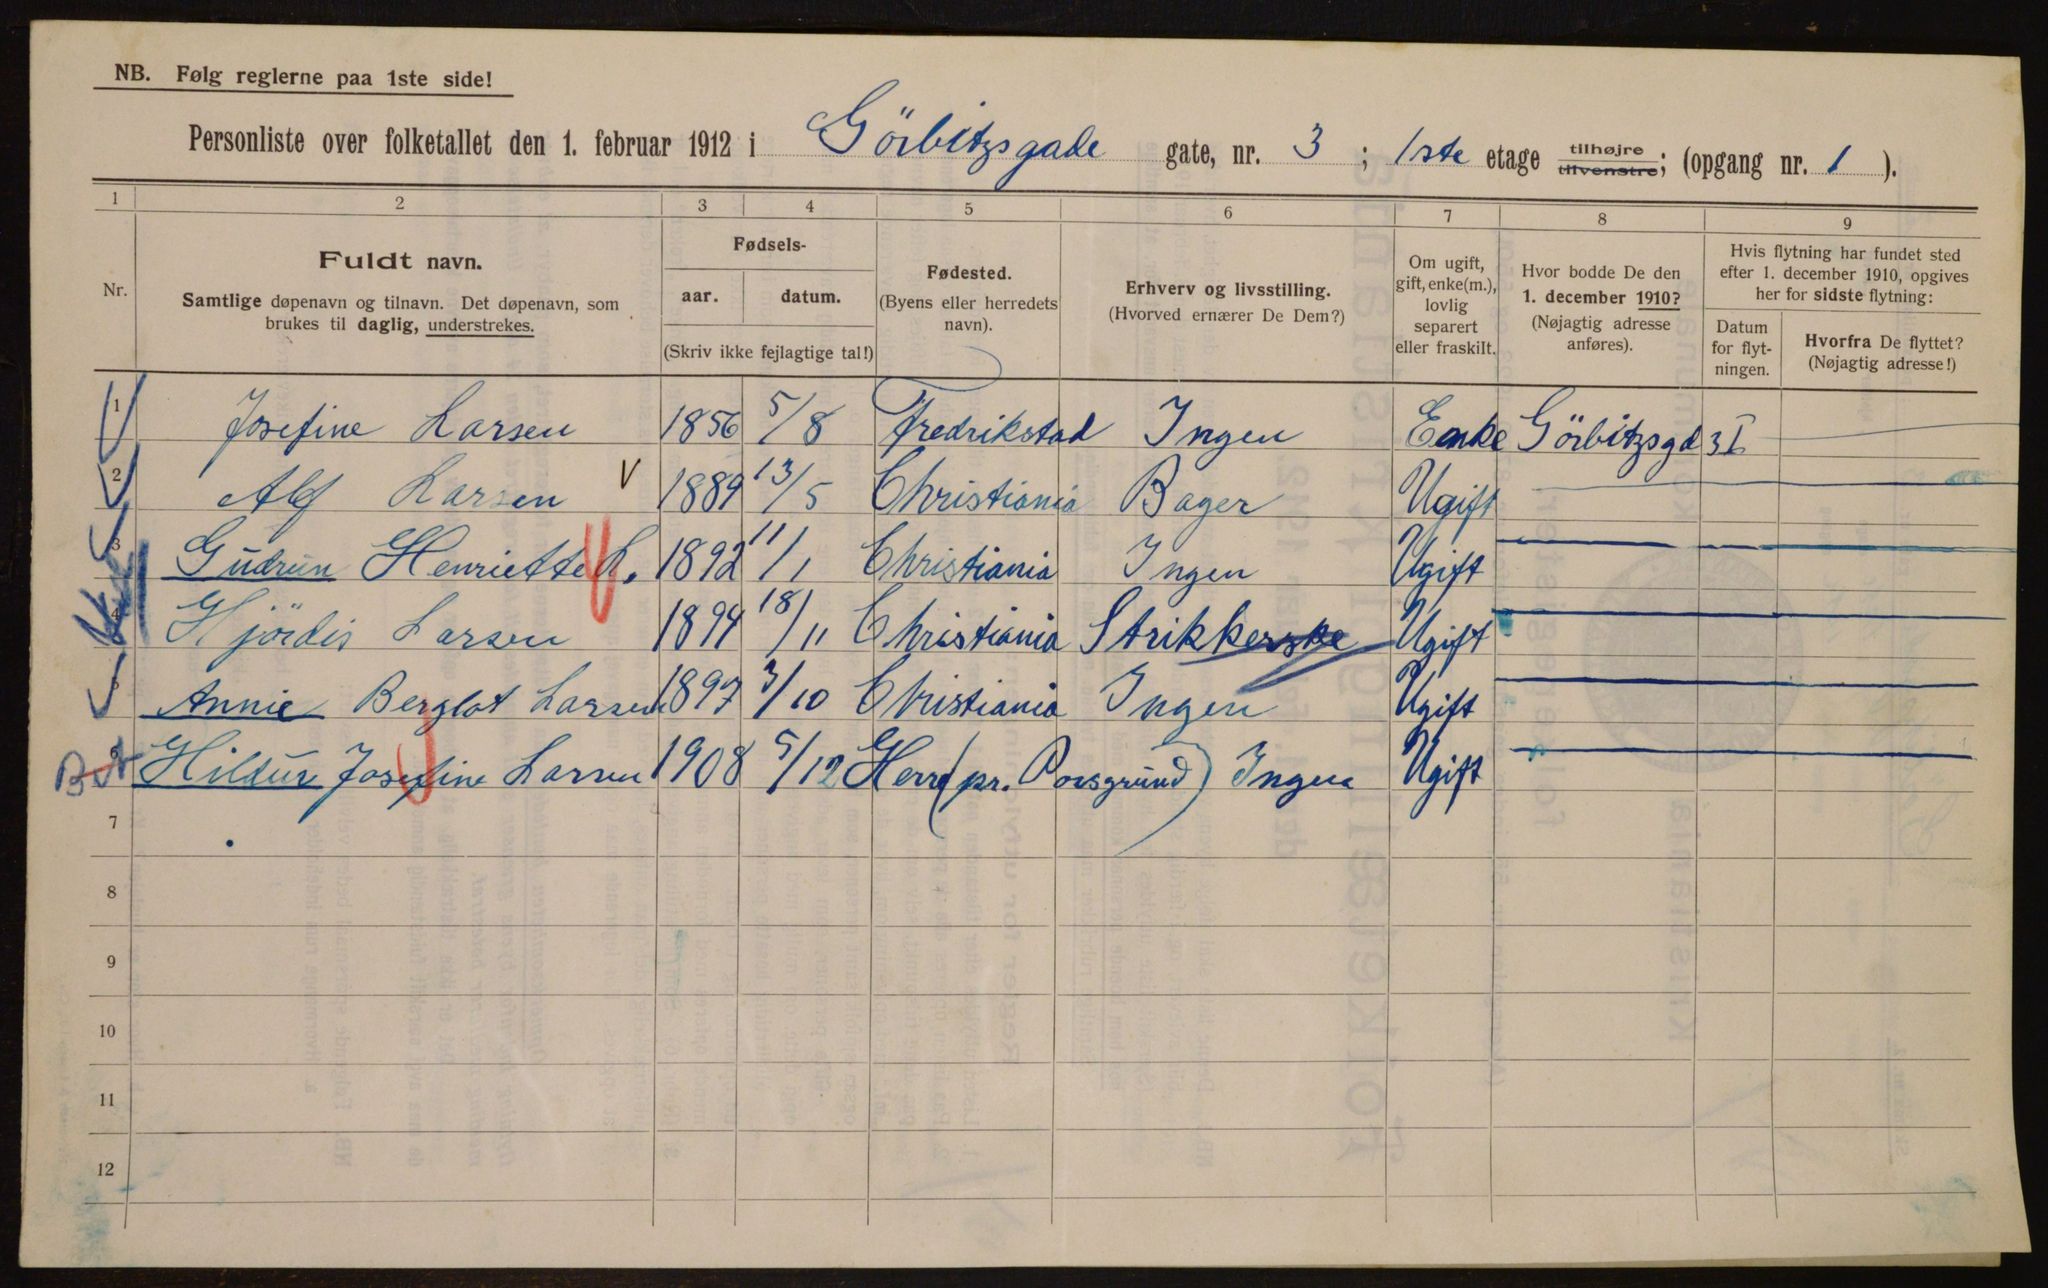 NB. Følg reglerne paa 1ste side!
Personliste over folketallet den 1. februar 1912 i Görbitzsgade gate, nr. 3 ; 1ste etage tilhøjre tilvenstre; (opgang nr. 1 ).
1 2 3 4 5 6 7 8 9
Nr.
Fuldt navn.
Samtlige døpenavn og tilnavn. Det døpenavn, som
brukes til daglig, understrekes.
Fødsels-
aar. datum.
(Skriv ikke fejlagtige tal!)
Fødested.
(Byens eller herredets
navn).
Erhverv og livsstilling.
(Hvorved ernærer De Dem?)
Om ugift,
gift, enke(m.),
lovlig
separert
eller fraskilt.
Hvor bodde De den
1. december 1910?
(Nøjagtig adresse
anføres).
Hvis flytning har fundet sted
efter 1. december 1910, opgives
her for sidste flytning:
Datum
for flyt-
ningen.
Hvorfra De flyttet?
(Nøjagtig adresse!)
1 Josefine Larsen 1856 5/8 Fredrikstad Ingen Enke Görbitzsgd 3 I
2 Alf Larsen 1889 13/5 Christiania Bager Ugift
3 Gudrun Henriette L. 1892 11/1 Christiania Ingen Ugift
4 Hjördis Larsen 1894 18/11 Christiania Strikkerske Ugift
5 Annie Berglot Larsen 1897 3/10 Christiania Ingen Ugift
6 Hildur Josefine Larsen 1908 5/12 Herre (pr. Porsgrund) Ingen Ugift
7
8
9
10
11
12